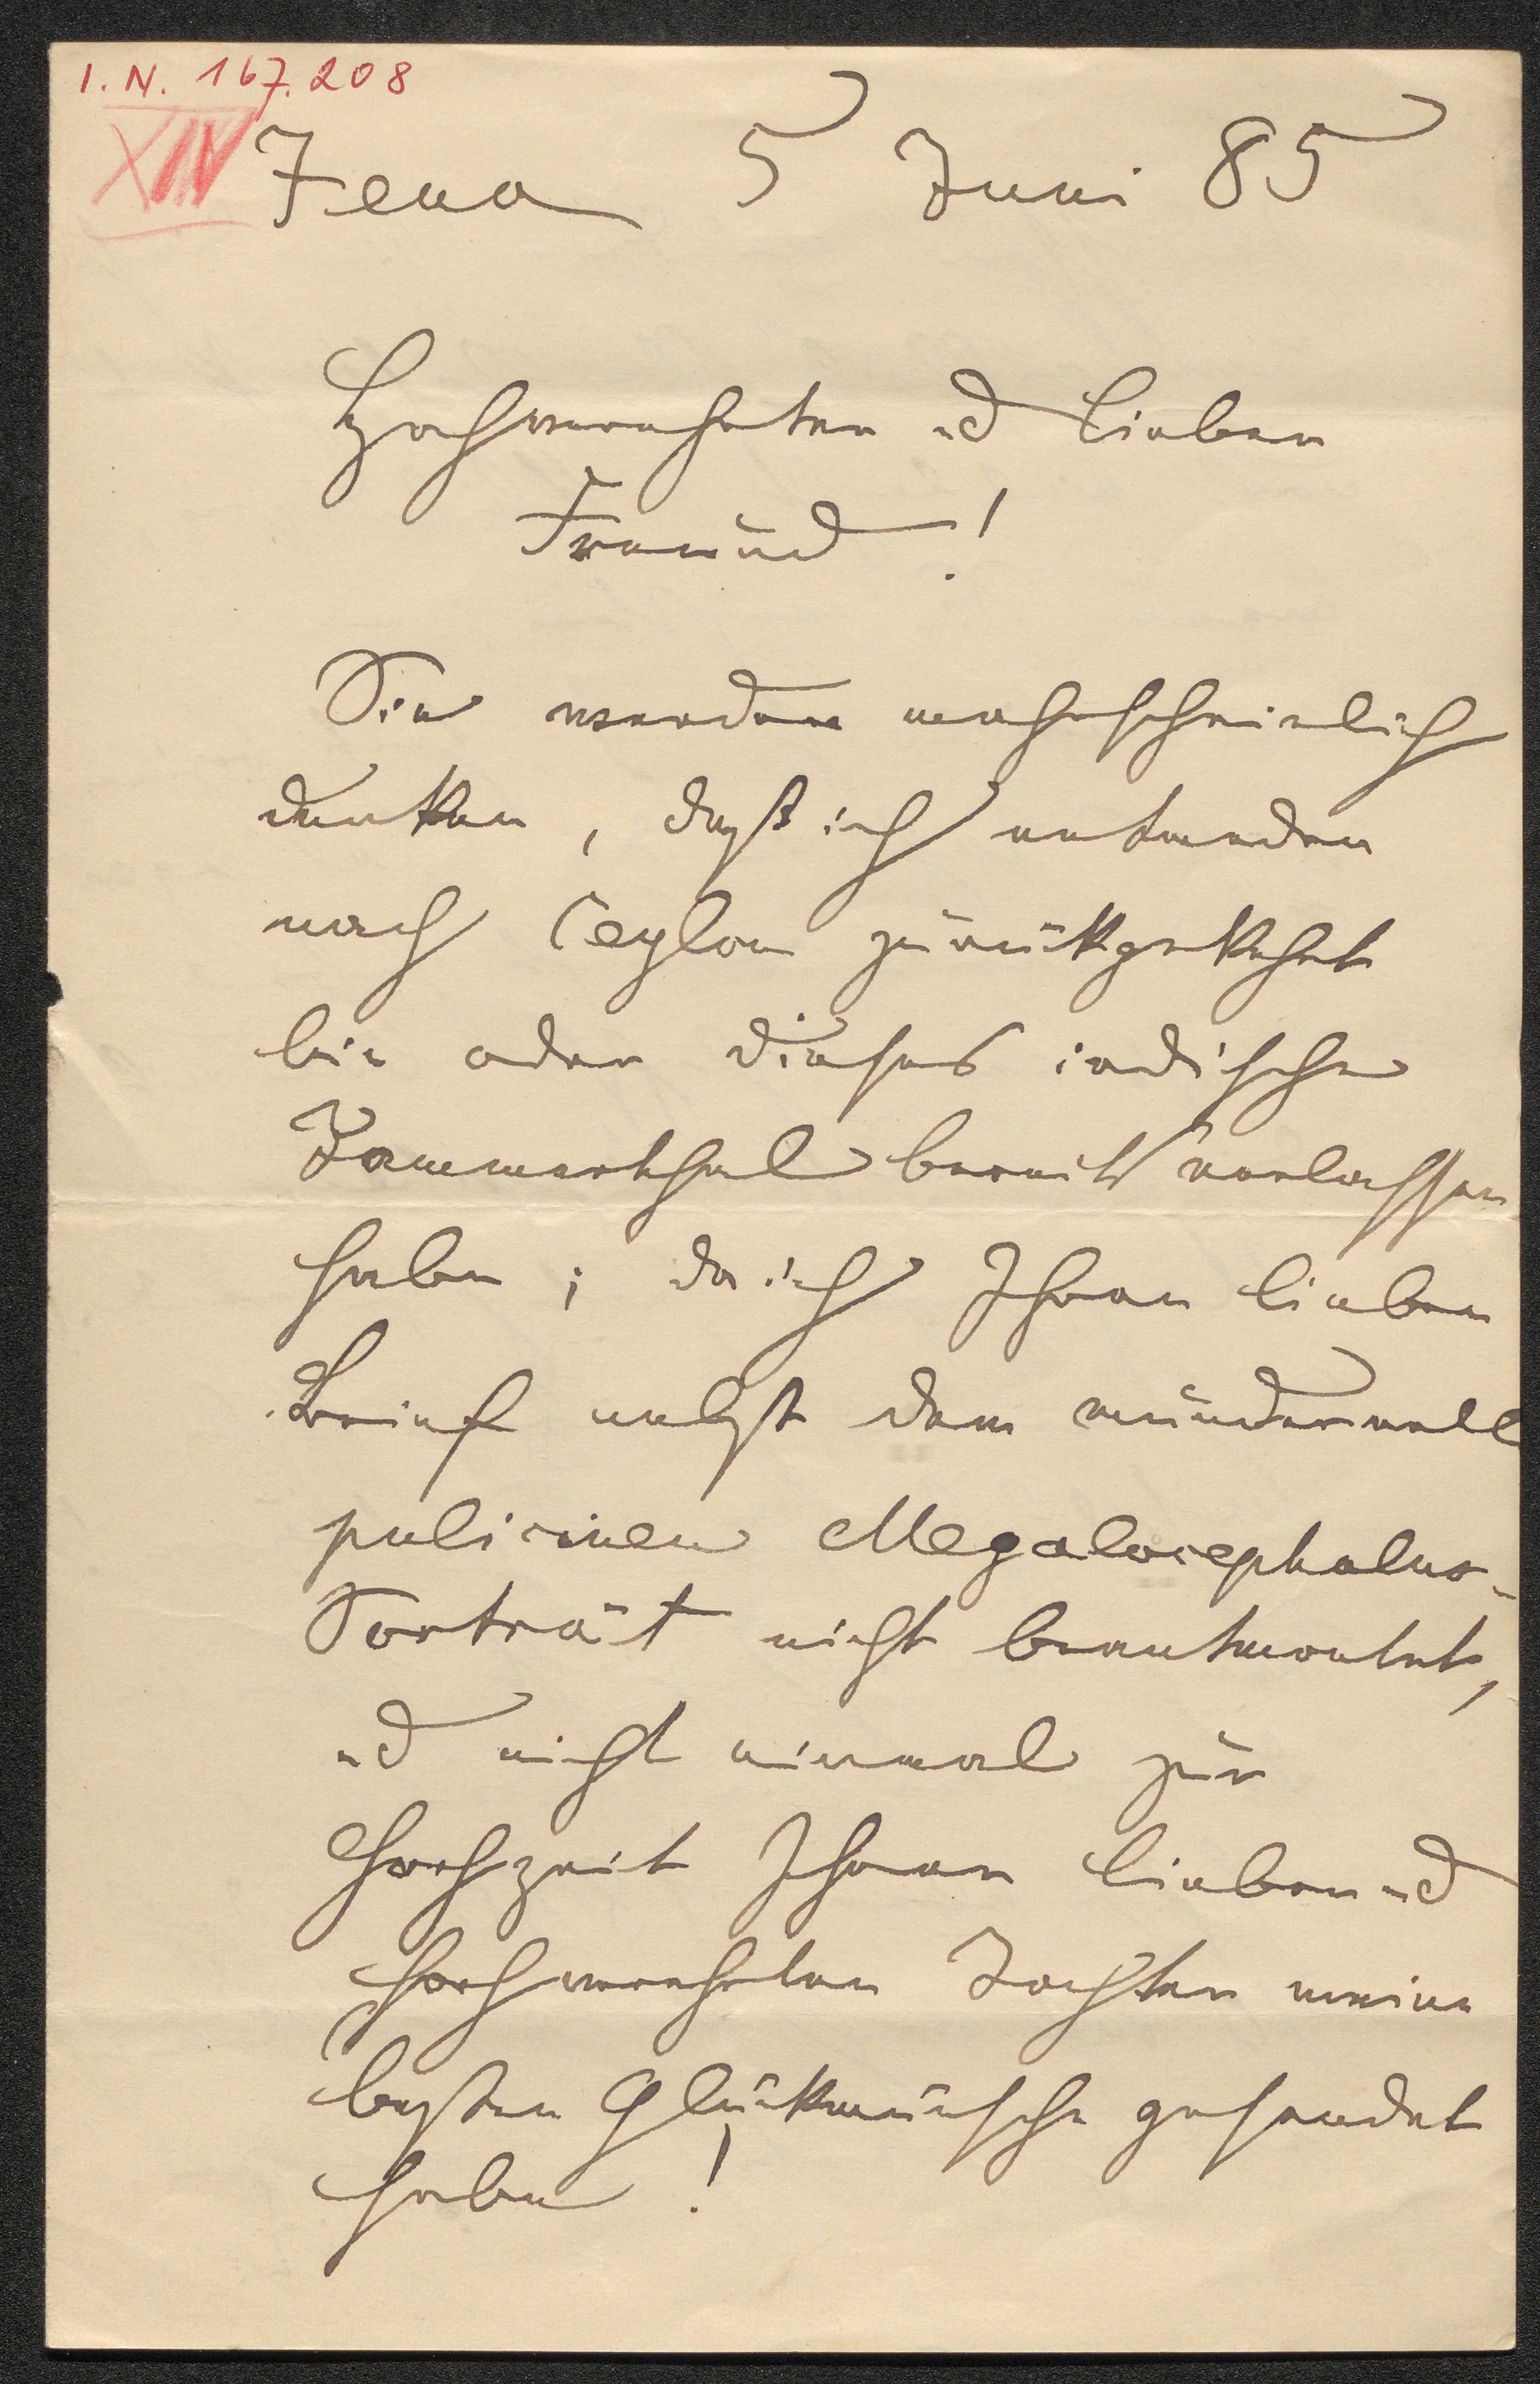 I.N. 167.208
XIV
Jena 5 Juni 85
Hochverehrter u̅d lieber
Freund!
Sie werden wahrscheinlich
denken, daß ich entweder
nach Ceylon zurückgekehrt
bin oder dieses irdische
Jammerthal bereits verlassen
habe; da ich Ihren lieben
Brief nebst dem wundervoll
Megalocephalus-
Porträt nicht beantwortet,
ud nicht einmal zur
Hochzeit Ihrer lieben ud
hochverehrten Tochter meine
besten Glückwünsche gesendet
habe!